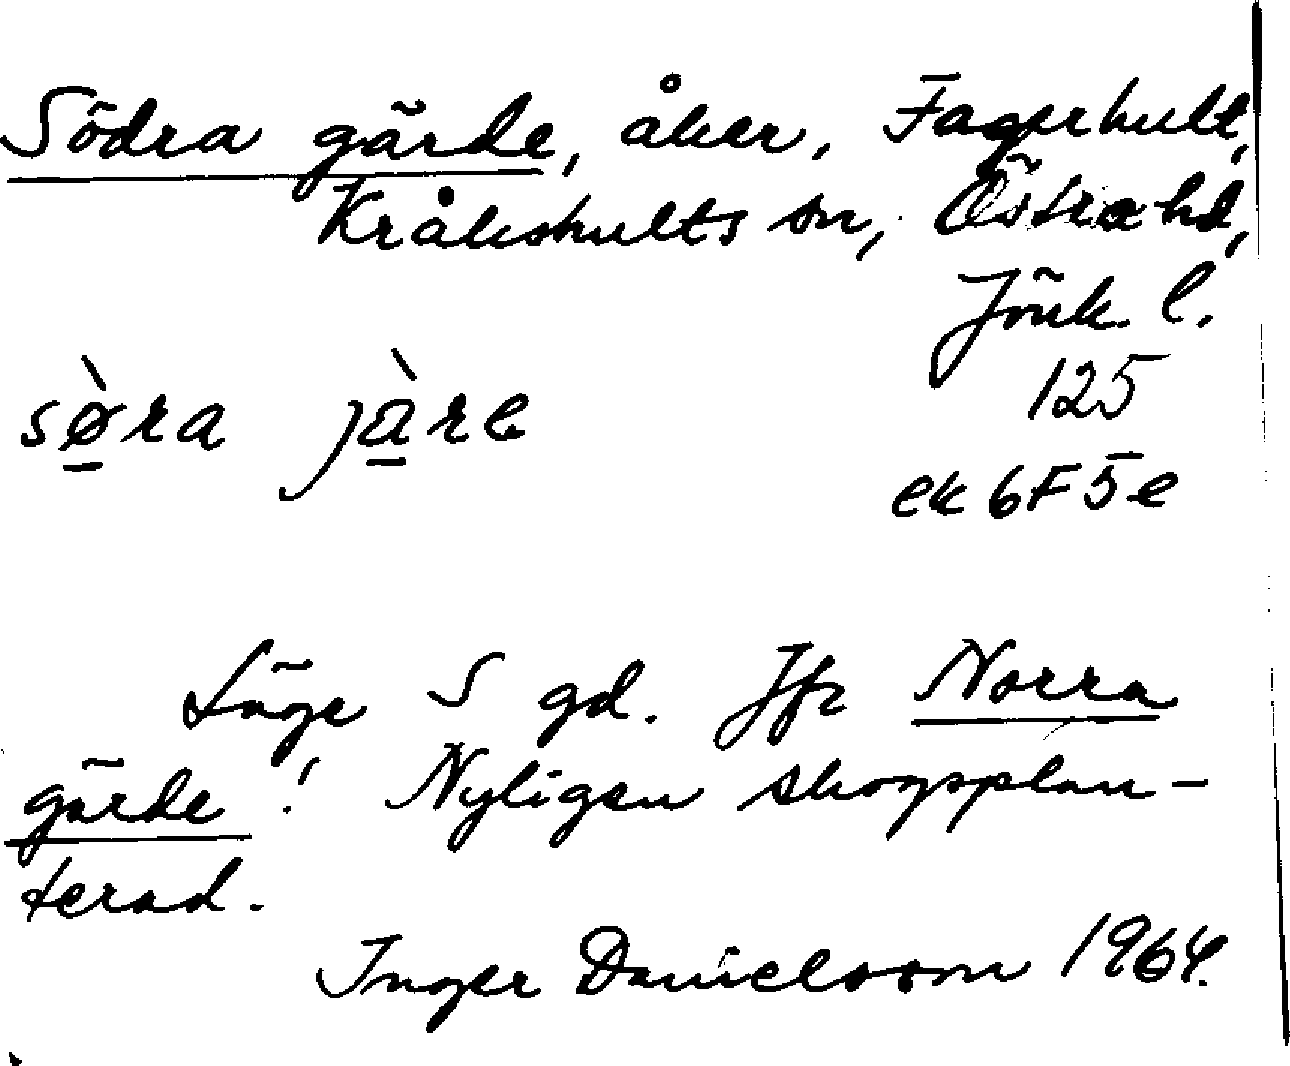 Södra gärde, åker, Fagerhult,
Kråkshults sn, Östra hd,
Jönk. l.
sø̱̀ra jà̱re
125
ek 6F5e
Läge S gd. Jfr Norra
gärde! Nyligen skogsplan-
terad.
Inger Danielsson 1964.